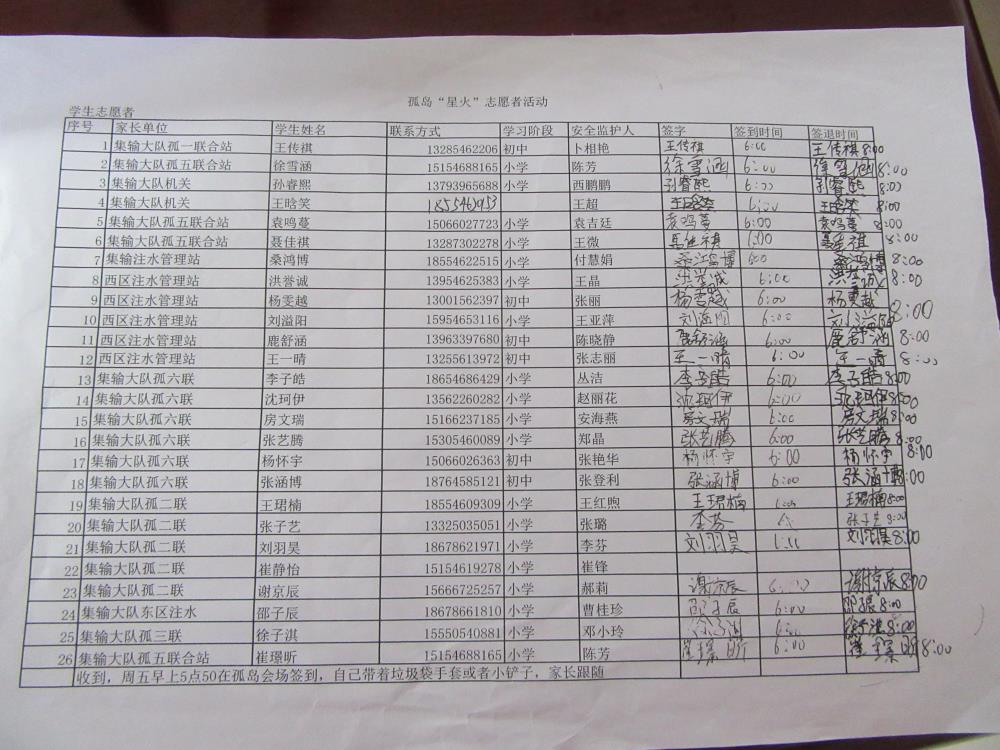 孤岛“星火”志愿者活动
学生志愿者
序号 家长单位 学生姓名 联系方式 学习阶段 安全监护人 签字 签到时间 签退时间
1 集输大队孤一联合站 王传祺 13285462206 初中 卜相艳 王传祺 6:00 王传祺 8:00
2 集输大队孤五联合站 徐雪涵 15154688165 小学 陈芳 徐雪涵 6:00 徐雪涵 8:00
3 集输大队机关 孙睿熙 13793965688 小学 西鹏鹏 孙睿熙 6:00 孙睿熙 8:00
4 集输大队机关 王晗笑 王超 6:00 8:00
5 集输大队孤五联合站 袁鸣蔓 15066027723 小学 袁吉廷 袁鸣蔓 6:00 袁鸣蔓 8:00
6 集输大队孤五联合站 聂佳祺 13287302278 小学 王微 聂佳祺 6:00 聂佳祺 8:00
7 集输注水管理站 桑鸿博 18554622515 小学 付慧娟 桑鸿博 6:00 桑鸿博 8:00
8 西区注水管理站 洪誉诚 13954625383 小学 王晶 洪誉诚 6:00 洪誉诚 8:00
9 西区注水管理站 杨雯越 13001562397 初中 张丽 杨雯越 6:00 杨雯越 8:00
10 西区注水管理站 刘溢阳 15954653116 小学 王亚萍 刘溢阳 6:00 刘溢阳
11 西区注水管理站 鹿舒涵 13963397680 初中 陈晓静 鹿舒涵 6:00 鹿舒涵 8:00
12 西区注水管理站 王一晴 13255613972 初中 张志丽 王一晴 6:00 王一晴 8:00
13 集输大队孤六联 李子皓 18654686429 小学 丛洁 李子皓 6:00 李子皓 8:00
14 集输大队孤六联 沈珂伊 13562260282 小学 赵丽花 沈珂伊 6:00 沈珂伊 8:00
15 集输大队孤六联 房文瑞 15166237185 小学 安海燕 房文瑞 6:00 房文瑞 8:00
16 集输大队孤六联 张艺腾 15305460089 小学 郑晶 张艺腾 6:00 张艺腾 8:00
17 集输大队孤六联 杨怀宇 15066026363 初中 张艳华 杨怀宇 6:00 杨怀宇 8:00
18 集输大队孤六联 张涵博 18764585121 初中 张登利 张涵博 6:00 张涵博 8:00
19 集输大队孤二联 王珺楠 18554609309 小学 王红煦 王珺楠 6:00 王珺楠 8:00
20 集输大队孤二联 张子艺 13325035051 小学 张璐 李芬 张子艺 8:00
21 集输大队孤二联 刘羽昊 18678621971 小学 李芬 刘羽昊 6:00 刘羽昊 8:00
22 集输大队孤二联 崔静怡 15154619278 小学 崔锋
23 集输大队孤二联 谢京辰 15666725257 小学 郝莉 谢京辰 6:00 谢京辰 8:00
24 集输大队东区注水 邵子辰 18678661810 小学 曹桂珍 邵子辰 6:00 8:00
25 集输大队孤三联 徐子淇 15550540881 小学 邓小玲 徐子淇 6:00 徐子淇 8:00
26 集输大队孤五联合站 崔璟昕 15154688165 小学 陈芳 崔璟昕 6:00 崔璟昕 8:00
收到，周五早上5点50在孤岛会场签到，自己带着垃圾袋手套或者小铲子，家长跟随